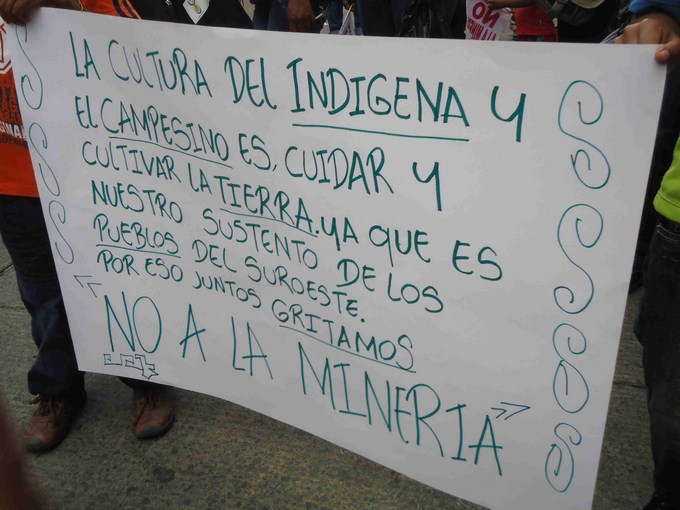 LA CULTURA DEL INDIGENA Y
EL CAMPESINO ES, CUIDAR Y
CULTIVAR LA TIERRA. YA QUE ES
NUESTRO SUSTENTO DE LOS
PUEBLOS DEL SUROESTE.
POR ESO JUNTOS GRITAMOS
"NO A LA MINERIA"